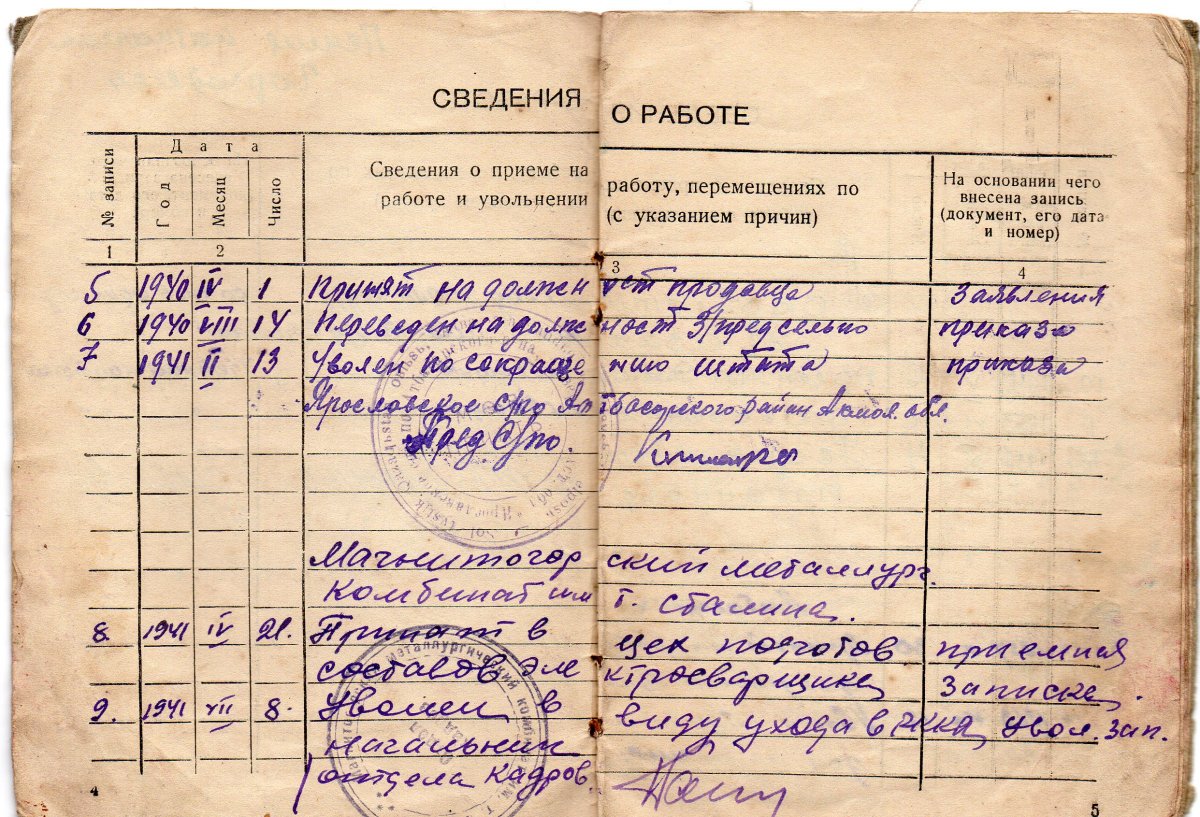 СВЕДЕНИЯ О РАБОТЕ
№ записи
Дата
Год
Месяц
Число
Сведения о приеме на работу, перемещениях по
работе и увольнении (с указанием причин)
На основании чего
внесена запись
(документ, его дата
и номер)
1 2 3 4
5 1940 IV 1 Принят на должност продавца заявления
6 1940 VIII 14 Переведен на должност З/предсельпо приказа
7 1941 II 13 Уволен по сокращению штата приказа
Ярославское с/по Атбасарского район Акмол. обл.
Пред С/по.
Магнитогорский металлург.
Комбинат им т. Сталина.
8. 1941 IV 21. Принят в цех подготов приемная
составов электросварщика записка.
9. 1941 VII 8. Уволен в виду ухода в РККА увол. зап.
начальник
отдела кадров
4
5